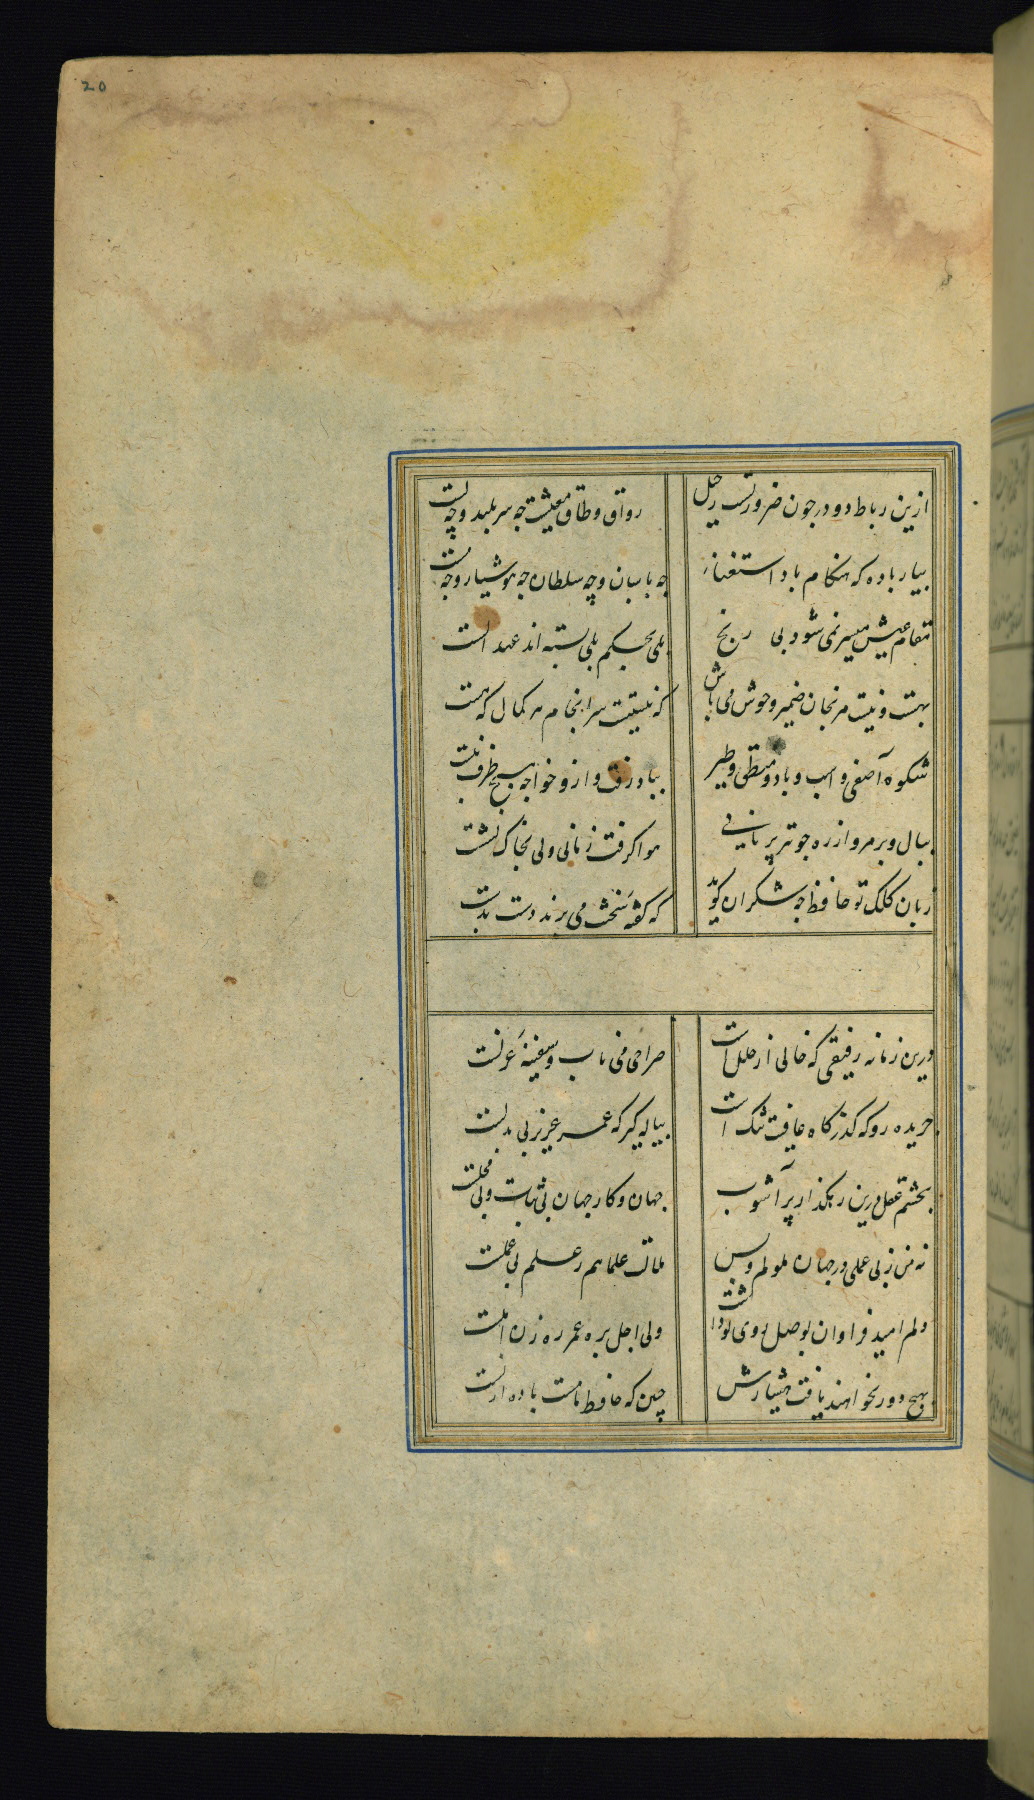 20
ازین رباط دو در چون ضرورتست رحیل
رواق و طاق معیشت چه سربلند و چه پست
بیار باده که هنگام باد استغنا
چه پاسبان و چه سلطان چه هوشیار و چه مست
مقام عیش میسر نمی شود بی رنج
بلی بحکم بلی بسته اند عهد الست
بهست و نیست مرنجان ضمیر و خوش می باش
که نیستیست سرانجام هر کمال که هست
شکوه آصفی و اسب باد و منطق طیر
بباد رفت و ازو خواجه هیچ طرف نبست
ببال و پر مرو از ره چو تیر پرتابی
هوا گرفت زمانی ولی بخاک نشست
زبان کلک تو حافظ چه شکر آن گوید
که گفته سخنت می برند دست بدست
درین زمانه رفیقی که خالی از خللست
صراحی می ناب و سفینه غزلست
جریده رو که گذرگاه عافیت تنگ است
پیاله گیر که عمر عزیز بی بدلست
بچشم عقل درین رهگذار پر آشوب
جهان و کار جهان بی ثبات و بی محلست
نه من ز بی عملی در جهان ملولم و بس
ملالت علما هم ز علم بی عملست
دلم امید فراوان بوصل روی تو داشت
ولی اجل بره عمر رهزن املست
بهیچ دور نخواهند یافت هشیارش
چنین که حافظ ما مست باده ازلست